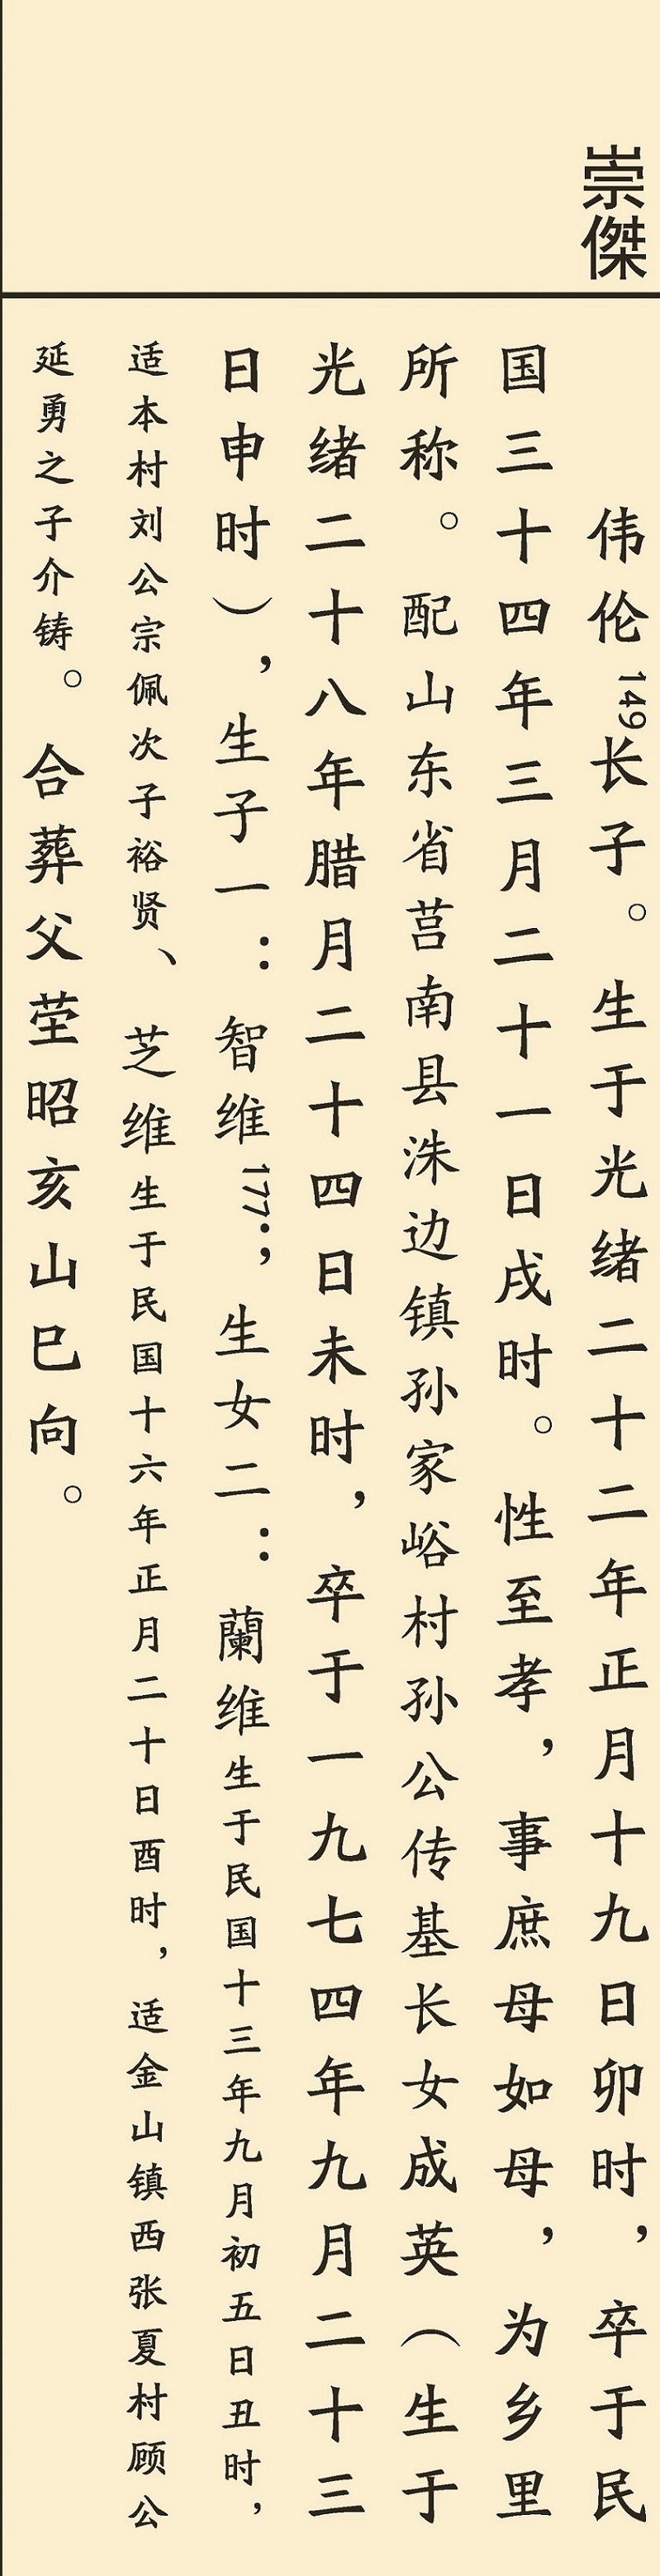 崇傑
伟伦149长子。生于光绪二十二年正月十九日卯时，卒于民
国三十四年三月二十一日戌时。性至孝，事庶母如母，为乡里
所称。配山东省莒南县洙边镇孙家峪村孙公传基长女成英（生于
光绪二十八年腊月二十四日未时，卒于一九七四年九月二十三
日申时），生子一：智维177；生女二：蘭维生于民国十三年九月初五日丑时，
适本村刘公宗佩次子裕贤、芝维生于民国十六年正月二十日酉时，适金山镇西张夏村顾公
延勇之子介铸。合葬父茔昭亥山巳向。